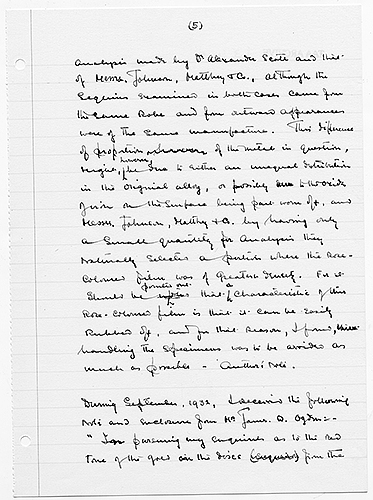 (5)
Analysis made by Dr Alexander Scott and that
of Messrs. Johnson, Matthey & Co., although the
sequins examined in both cases came from
the same Robe and from outward appearances
were of the same manufacture. This difference
of proportion of the metal in question,
might, however, be due to either an unequal distribution
in the original alloy, or possibly to the oxide
on the surface being part worn off, and
Messrs. Johnson, Matthey & Co. by having only
a small quantity for analysis they
naturally selected a portion where this Rose-
coloured film was of greatest density. For it
should be pointed out that a characteristic of this
Rose-coloured film is that it can be easily
rubbed off, and for that reason, I found,
handling the specimens was to be avoided as
much as possible - Author's Note.
During September, 1932, I received the following
note and enclosure from Mr James. R. Ogden:-
" In pursuing my enquiries as to the red
tone of the gold on the discs (sequins) from the